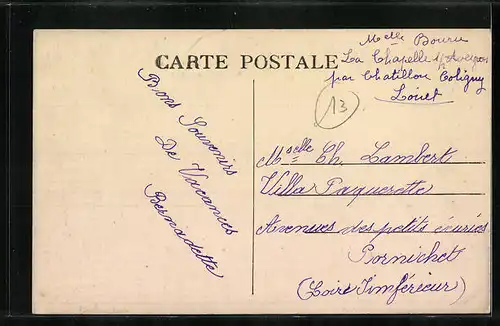 CARTE POSTALE
Melle Bouru
La Chapelle s/ Aveyron
par Chatillon Coligny
Loiret
13
Bons Souvenirs
De Vacances
Bernadette
Mselle Ch. Lambert
Villa Paquerette
Avenues des petits écuries
Pornichet
(Loire Inférieur)